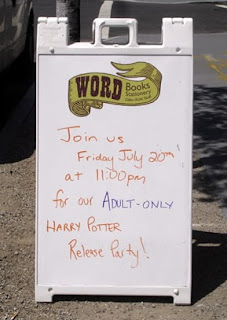 WORD Books
Stationery
Join us
Friday July 20th
at 11:00pm
for our ADULT-ONLY
HARRY POTTER
Release Party!